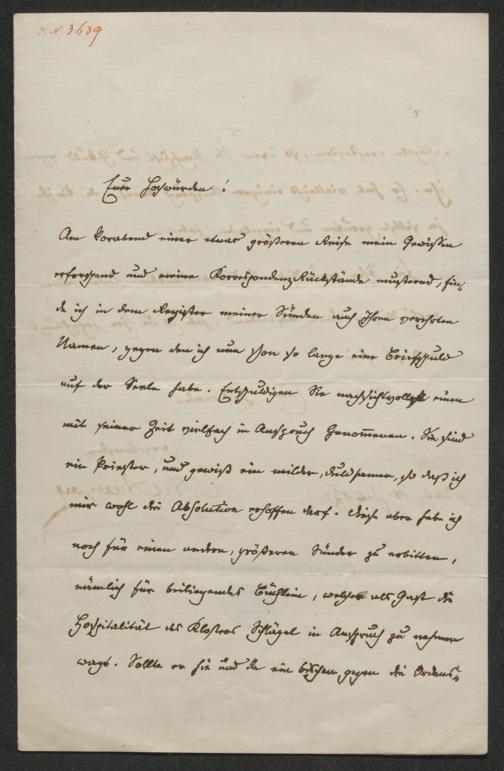 I. N. 3639
Euer Hochwürden!
Am Vorabend einer etwas größeren Reise mein Gewissen
erforschend und meine Korrespondenz-Rückstände musternd, fin-
de ich in dem Register meiner Sünden auch Ihren verehrten
Namen, gegen den ich nun schon so lange eine Briefschuld
auf der Seele habe. Entschuldigen Sie nachsichtvollst einen
mit seiner Zeit vielfach in Anspruch Genommenen. Sie sind
ein Priester, und gewiß ein milder, duldsamer, so daß ich
mir wohl die Absolution erhoffen darf. Diese aber habe ich
noch für einen andern, größeren Sünder zu erbitten,
nämlich für beiliegendes Büchlein, welches als Gast die
Hospitalität des Klosters Schlägel in Anspruch zu nehmen
wagt. Sollte er hie und da ein bischen gegen die Ordens-